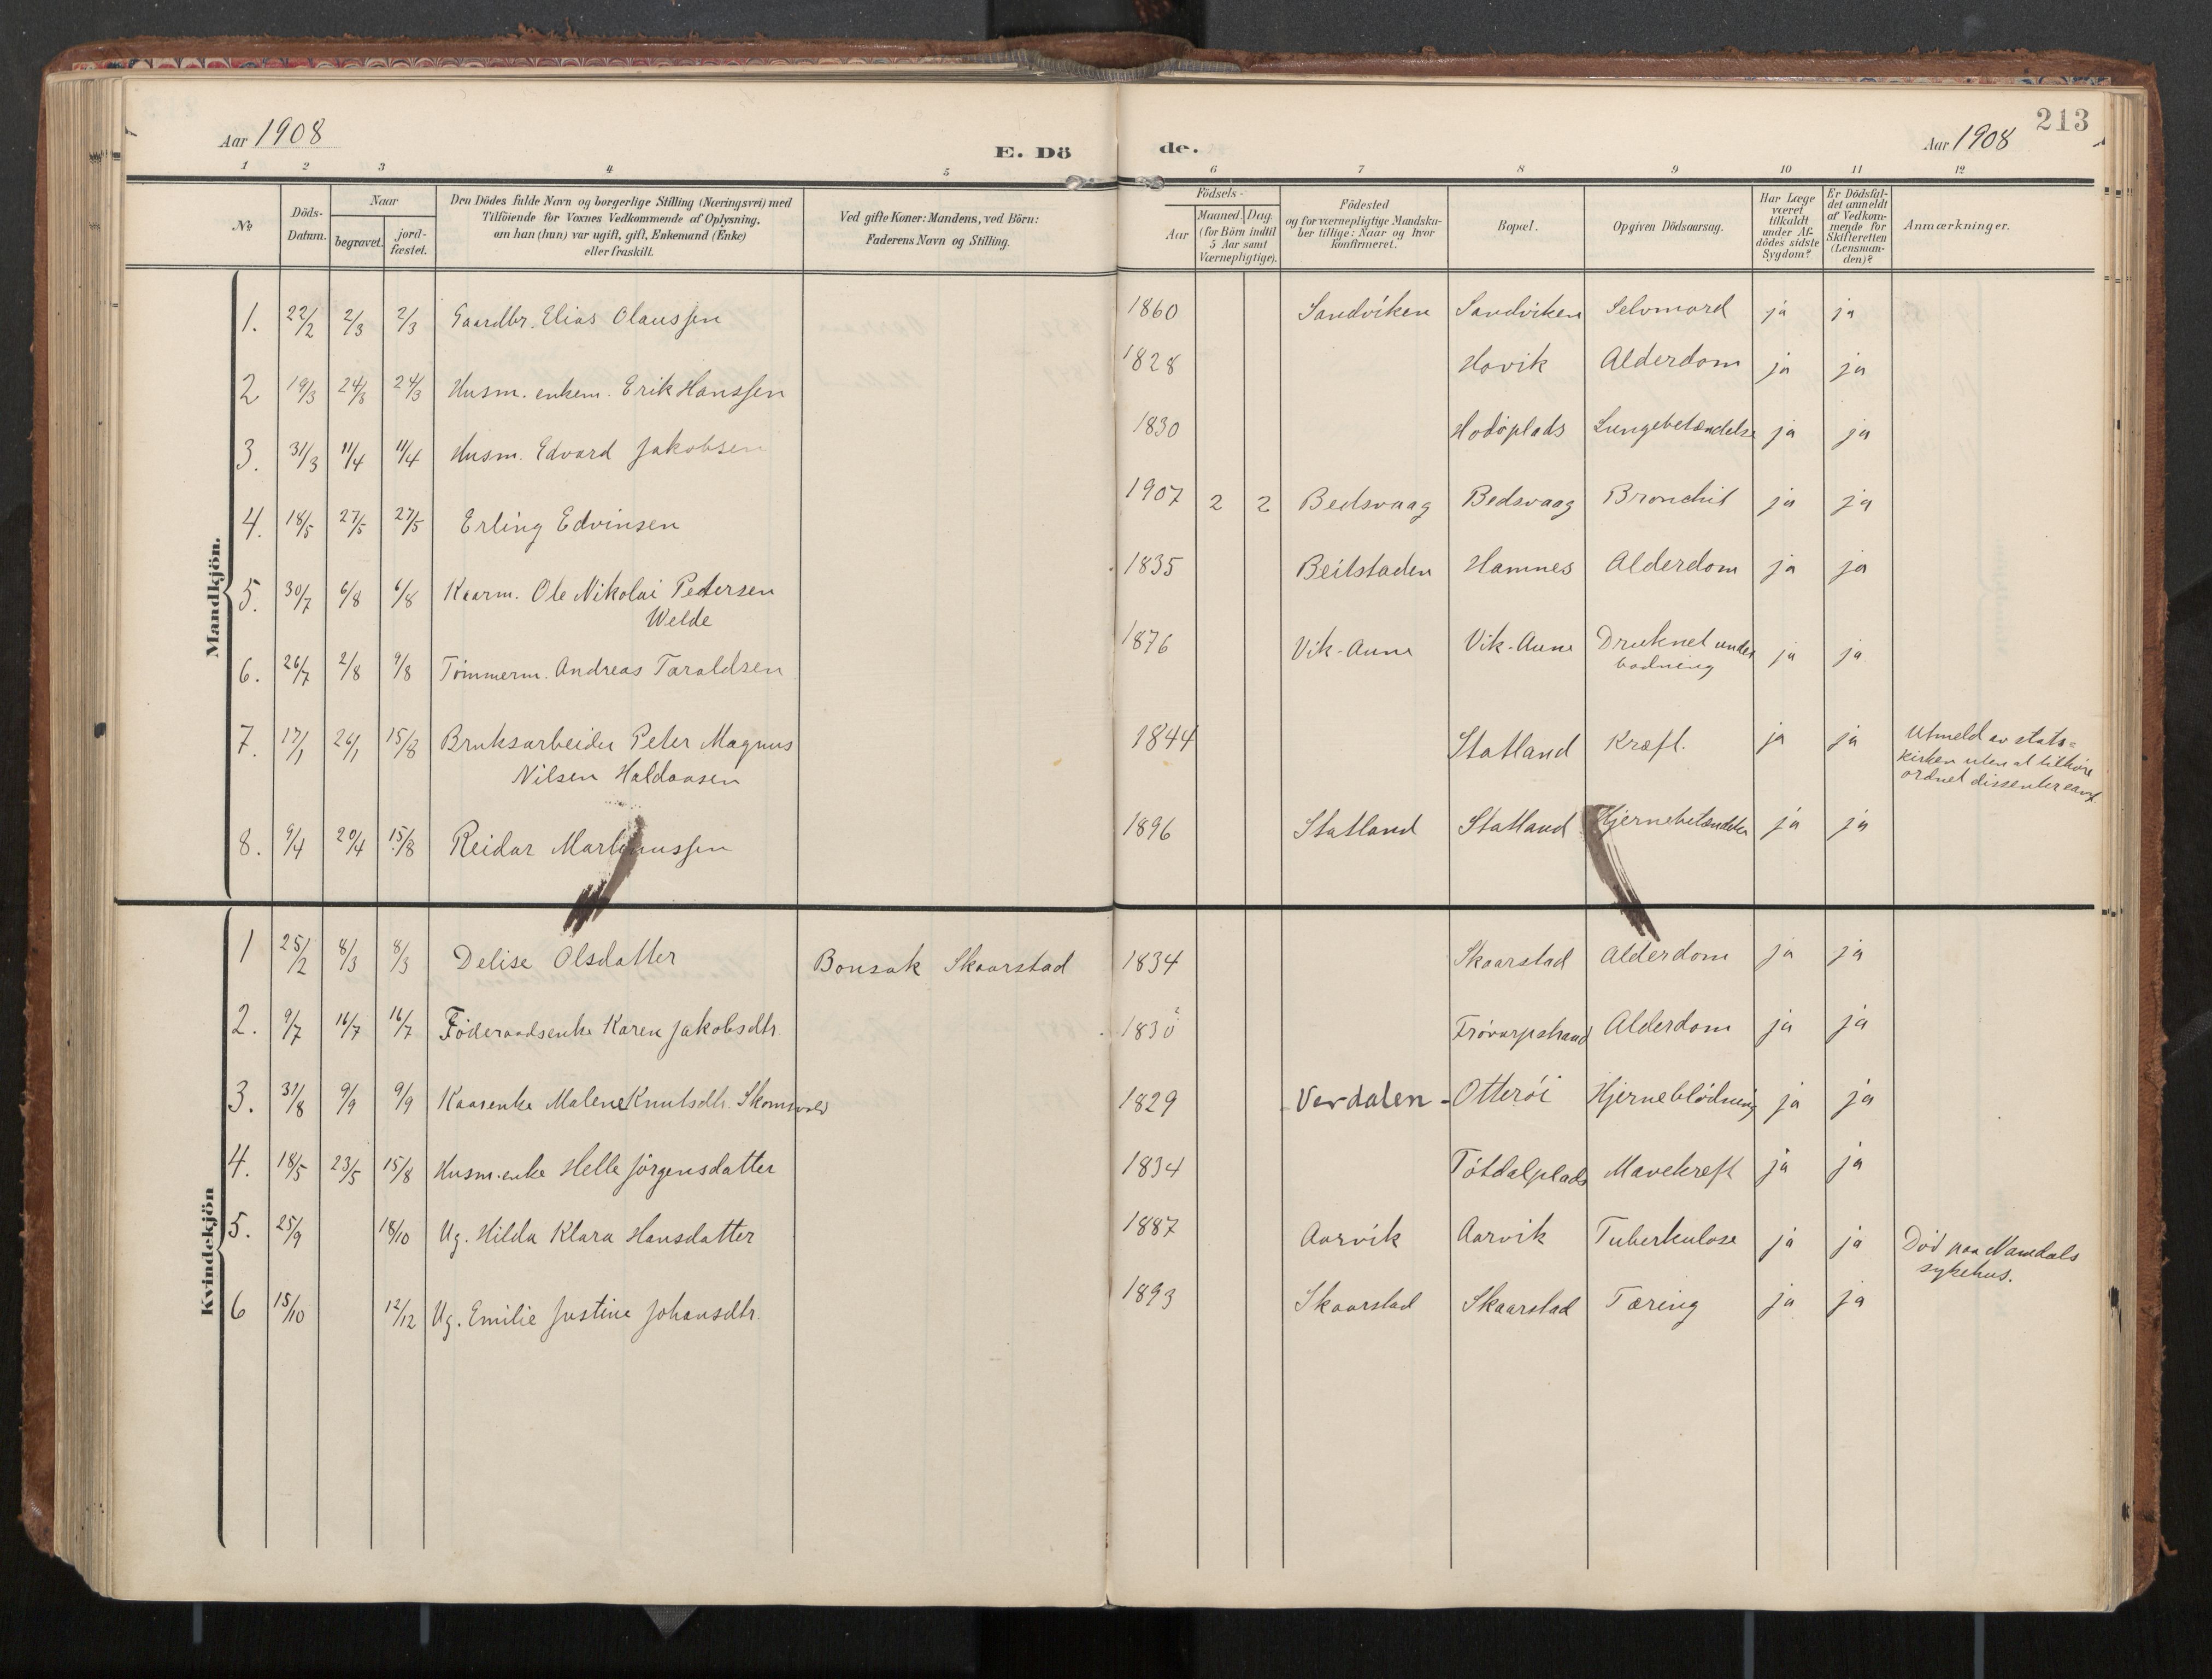 213
Aar 1908
E. Dö
de.
Aar 1908
1 2 3 4 5 6 7 8 9 10 11 12
№
Döds-
Datum.
Naar
begravet.
jord-
fæstet.
Den Dödes fulde Navn og borgerlige Stilling (Næringsvei) med
Tilföiende for Voxnes Vedkommende af Oplysning,
om han (hun) var ugift, gift, Enkemand (Enke)
eller fraskilt.
Ved gifte Koner: Mandens, ved Börn:
Faderens Navn og Stilling.
Födsels-
Aar
Maaned. Dag.
(for Börn indtil
5 Aar samt
Værnepligtige).
Födested
og for værnepligtige Mandska-
ber tillige: Naar og hvor
konfirmeret.
Bopæl.
Opgiven Dödsaarsag.
Har Læge
været
tilkaldt
under Af-
dödes sidste
Sygdom?
Er Dödsfal-
det anmeldt
af Vedkom-
mende for
Skifteretten
(Lensman-
den)?
Anmærkninger.
Mandkjön.
1. 22/2 2/3 2/3 Gaardbr. Elias Olaussen 1860 Sandviken Sandviken Selvmord ja ja
2 19/3 24/3 24/3 Husm. enkem. Erik Hanssen 1828 Hovik Alderdom ja ja
3. 31/3 11/4 11/4 Husm. Edvard Jakobsen 1830 Hodöplads Lungebetændelse ja ja
4. 18/5 27/5 27/5 Erling Edvinsen 1907 2 2 Bedsvaag Bedsvaag Bronchit ja ja
5. 30/7 6/8 6/8 Kaarm. Ole Nikolai Petersen
Welde 1835 Beitstaden Hamnes Alderdom ja ja
6. 26/7 2/8 9/8 Tömmerm. Andreas Taraldsen 1876 Vik-Aune Vik-Aune Druknet under
badning ja ja
7. 17/1 26/1 15/8 Bruksarbeider Peter Magnus
Nilsen Haldaasen 1844 Statland Kræft. ja ja Utmeld av stats-
kirken uten at tilhöre
ordnet dissentersamf.
8. 9/4 20/4 15/8 Reidar Martinussen 1896 Statland Statland Hjernebetændelse ja ja
Kvindekjön
1 25/2 8/3 8/3 Delise Olsdatter Bonsak Skaarstad 1834 Skaarstad Alderdom ja ja
2. 9/7 16/7 16/7 Föderaadsenke Karen Jakobsdtr. 1830 Frövarpstrand Alderdom ja ja
3. 31/8 9/9 9/9 Kaarenke Malene Knutsdtr. Skomsvold 1829 Verdalen - Otteröi Hjerneblödning ja ja
4. 18/5 23/5 15/8 Husm.enke Helle Jörgensdatter 1834 Tötdalplads Mavekreft ja ja
5. 25/9 18/10 Ug. Hilda Klara Hansdatter 1887 Aarvik Aarvik Tuberkulose ja ja Död paa Namdals
sykehus.
6 15/10 12/12 Ug. Emilie Justine Johansdtr. 1893 Skaarstad Skaarstad Tæring ja ja